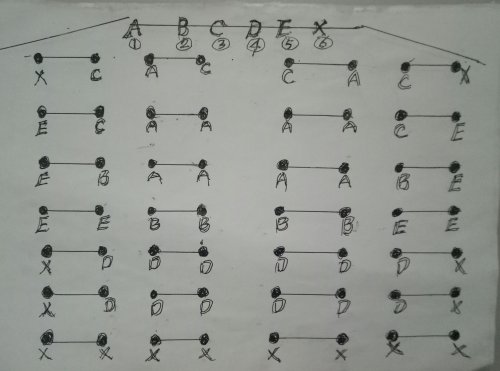 A B C D E X
① ② ③ ④ ⑤ ⑥
X C A C C A C X
E C A A A A C E
E B A A A A B E
E E B B B B E E
X D D D D D D X
X D D D D D D X
X X X X X X X X